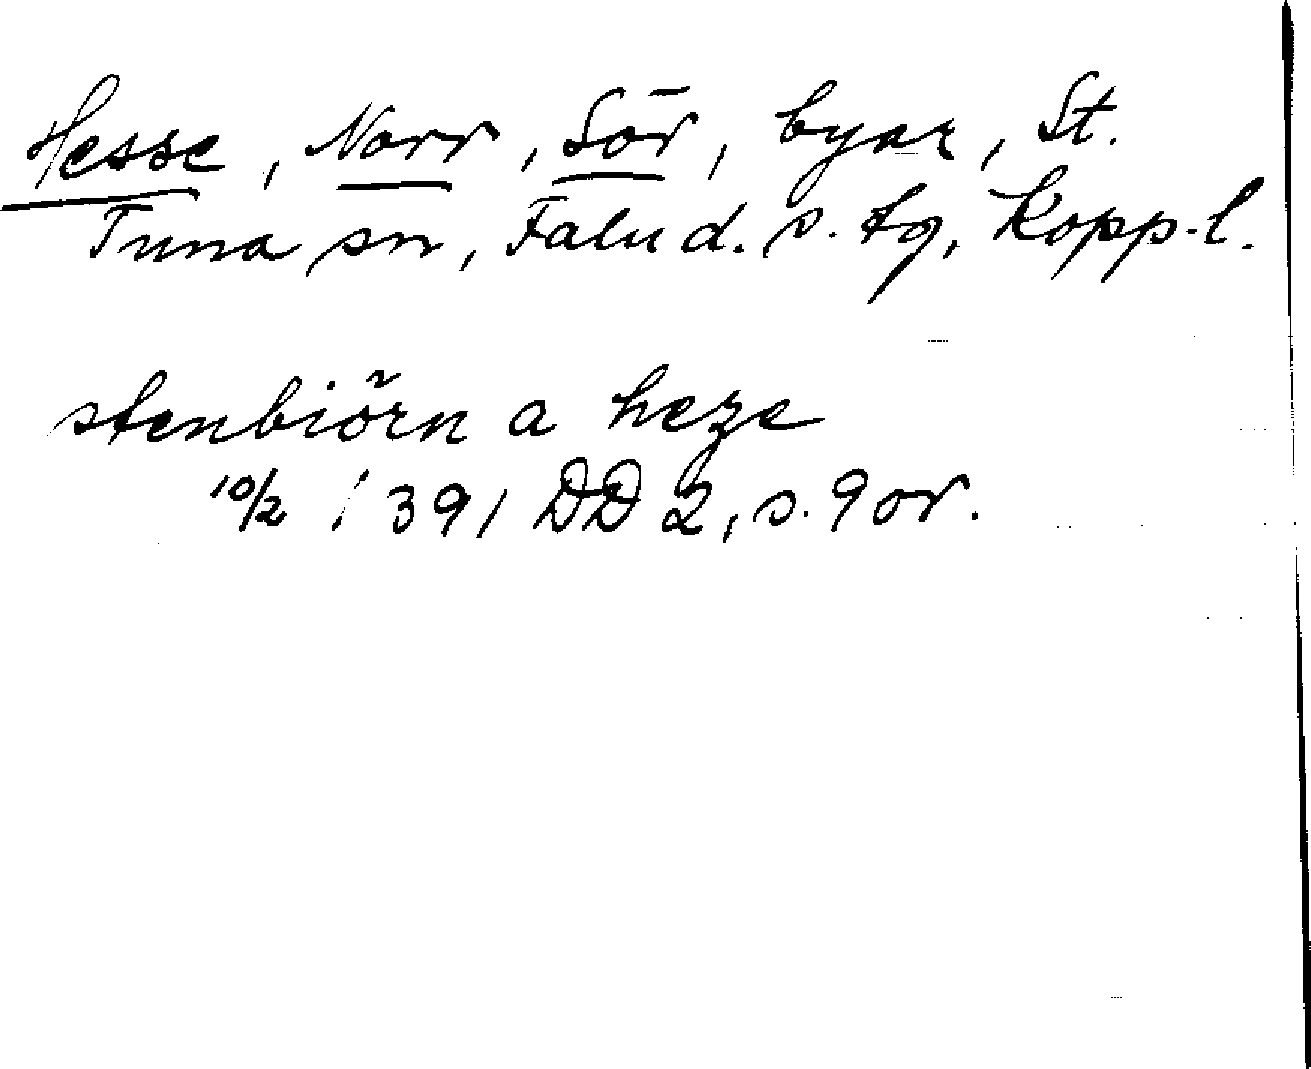 Hesse, Norr, Sör, byar, St.
Tuna sn, Falu d. s. tg, Kopp.l.
stenbiörn a heze
10/2 1391 DD 2, s. 9 or.